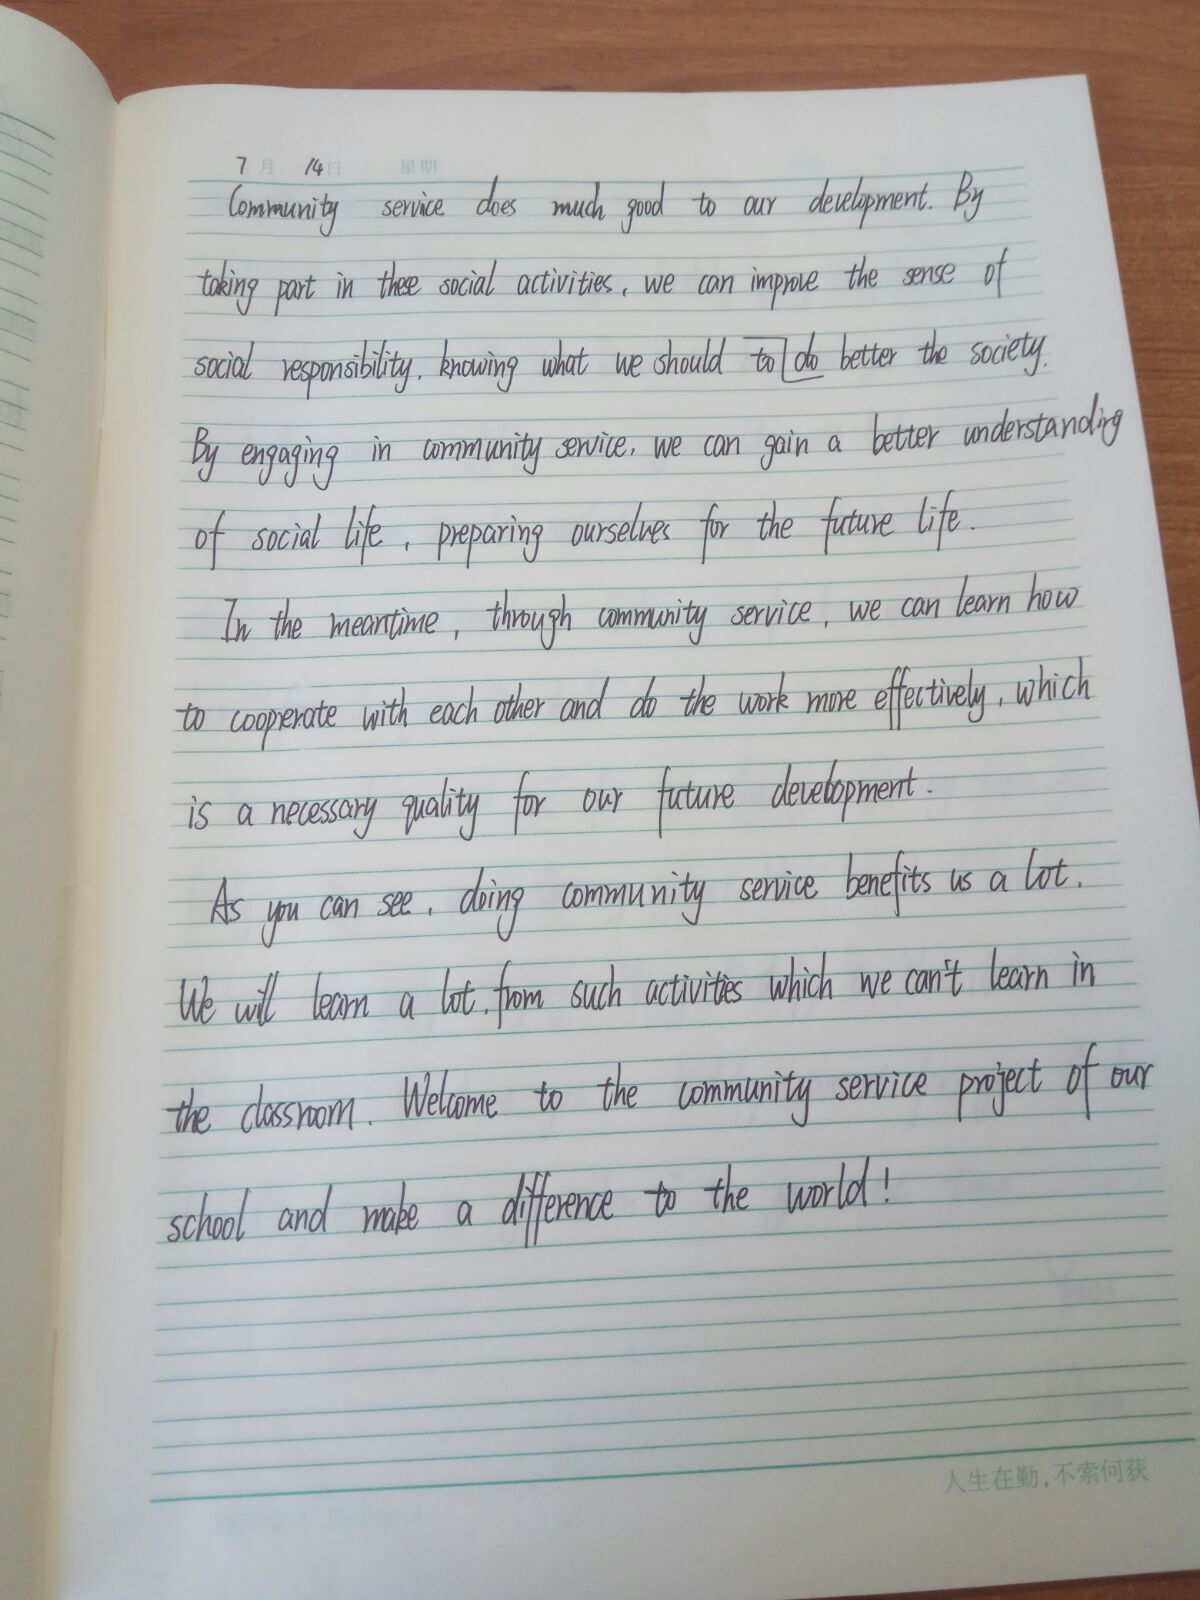 7月 14日 星期
Community service does much good to our development. By
taking part in these social activities, we can improve the sense of
social responsibility, knowing what we should to do better the society.
By engaging in community service, we can gain a better understanding
of social life, preparing ourselves for the future life.
In the meantime, through community service, we can learn how
to cooperate with each other and do the work more effectively, which
is a necessary quality for our future development.
As you can see, doing community service benefits us a lot.
We will learn a lot from such activities which we can't learn in
the classroom. Welcome to the community service project of our
school and make a difference to the world!
人生在勤,不索何获